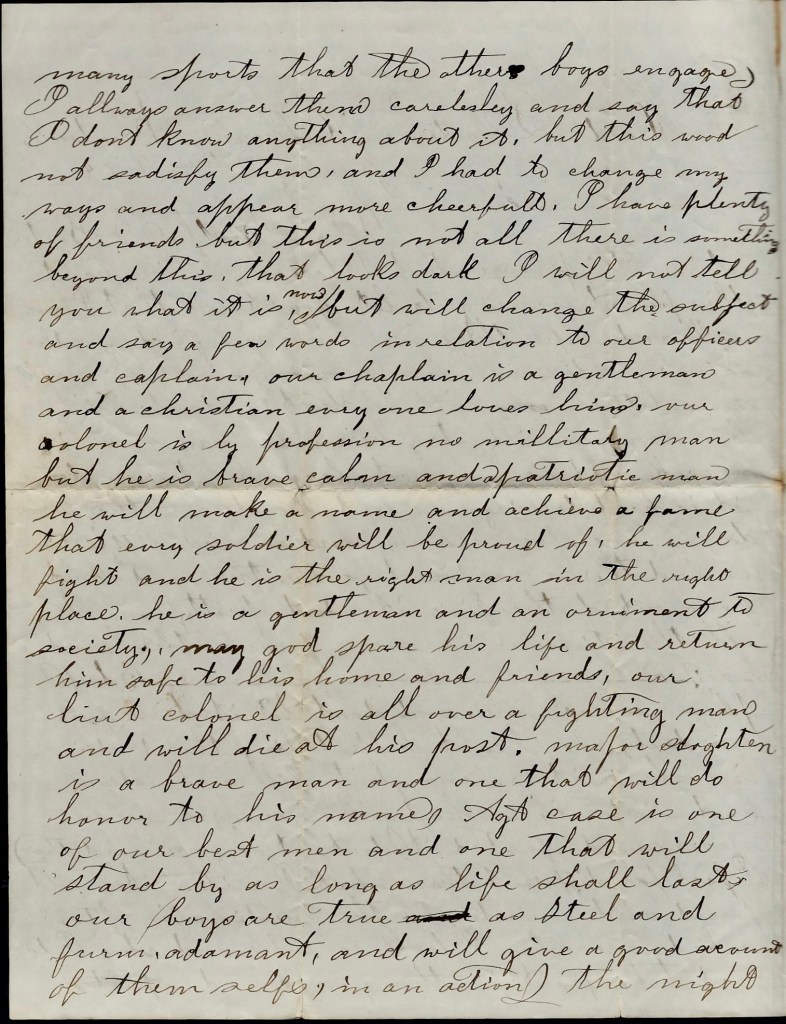 many sports that the other boys engage,
I allways answer them carelesley and say that
I dont know anything about it, but this wood
not sadisfy them, and I had to change my
ways and appear more cheerfull. I have plenty
of friends but this is not all there is something
beyond this. that looks dark I will not tell
you what it is, now, but will change the subject
and say a few words in relation to our officers
and caplain, our chaplain is a gentleman
and a christian evry one loves him. our
colonel is by profession no millitary man
but he is brave calm and a patriotic man
he will make a name and achieve a fame
that evry soldier will be proud of, he will
fight and he is the right man in the right
place. he is a gentleman and an orniment to
society,. may god spare his life and return
him safe to his home and friends, our
liut colonel is all over a fighting man
and will die at his post. major
is a brave man and one that will do
honor to his name, Agt case is one
of our best men and one that will
stand by as long as life shall last,
our boys are True and as Steel and
furm, adamant, and will give a good acount
of them selfs, in an action) the night